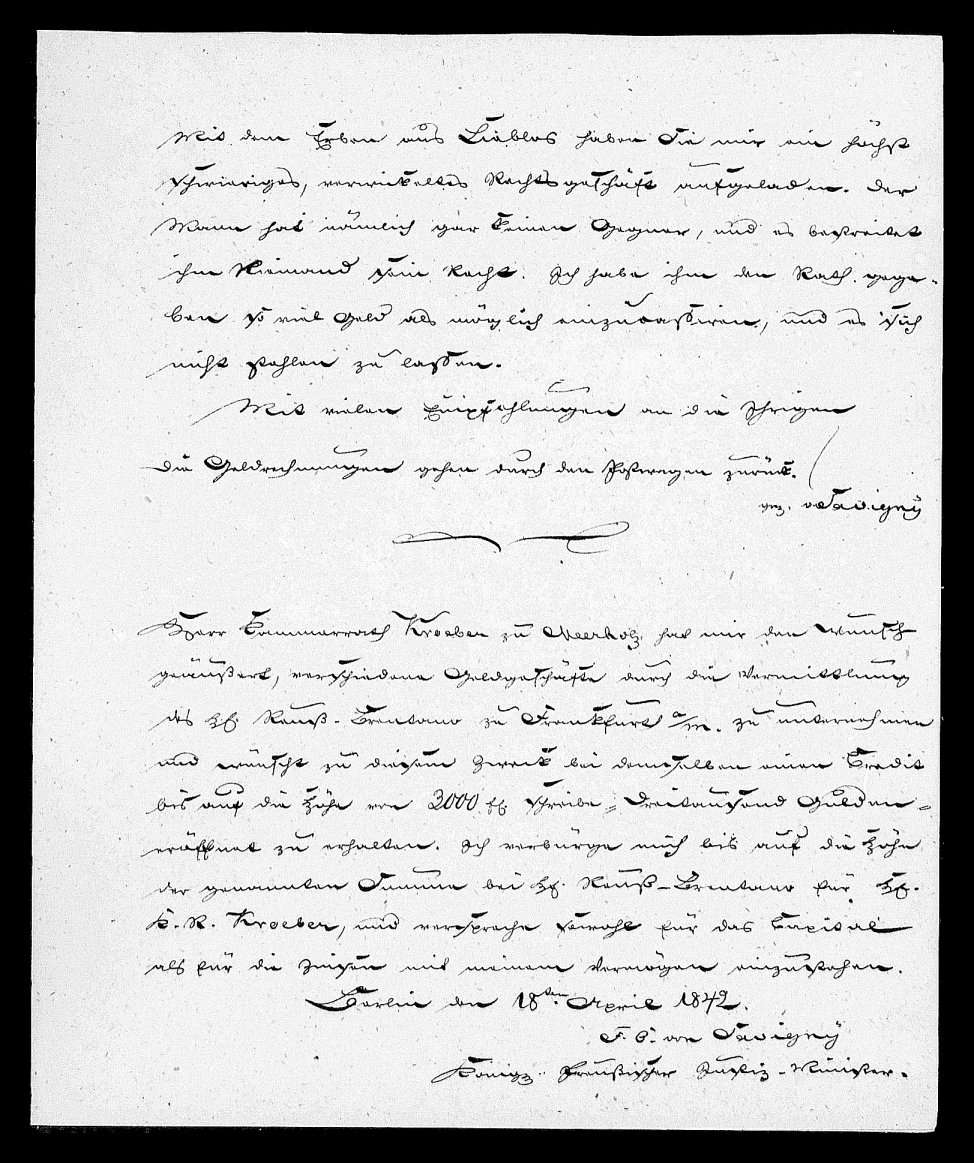 Mit dem Erben aus Lieblos haben Sie mir ein höchst
schwieriges, verwickeltes Rechtsgeschäft aufgeladen. Der
Mann hat nämlich gar keinen Gegner, und es bestreitet
ihm Niemand sein Recht. Ich habe ihm den Rath gege-
ben so viel Geld als möglich einzucassiren, und es sich
nicht stehlen zu lassen.
Mit vielen Empfehlungen an die Ihrigen
die Geldrechnungen gehen durch den Postwagen zurück.
gez. v Savigny
Herr Cammerrath Kroeber zu Meerholz hat mir den Wunsch
geäußert, verschiedene Geldgeschäfte durch die Vermittlung
des H. Reuß-Brentano zu Frankfurt a/m. zu unternehmen
und wünscht zu diesem Zweck bei demselben einen Credit
bis auf die Höhe von 3000 fl schreibe = Dreitausend Gulden =
eröffnet zu erhalten. Ich verbürge mich bis auf die Höhe
der genannten Summe bei H. Reuß-Brentano für H.
K. R. Kroeber, und verspreche sowohl für das Capital
als für die Zinsen mit meinem Vermögen einzustehen.
Berlin den 18ten April 1842.
F. C. von Savigny
Königl. Preußischer Justiz-Minister.